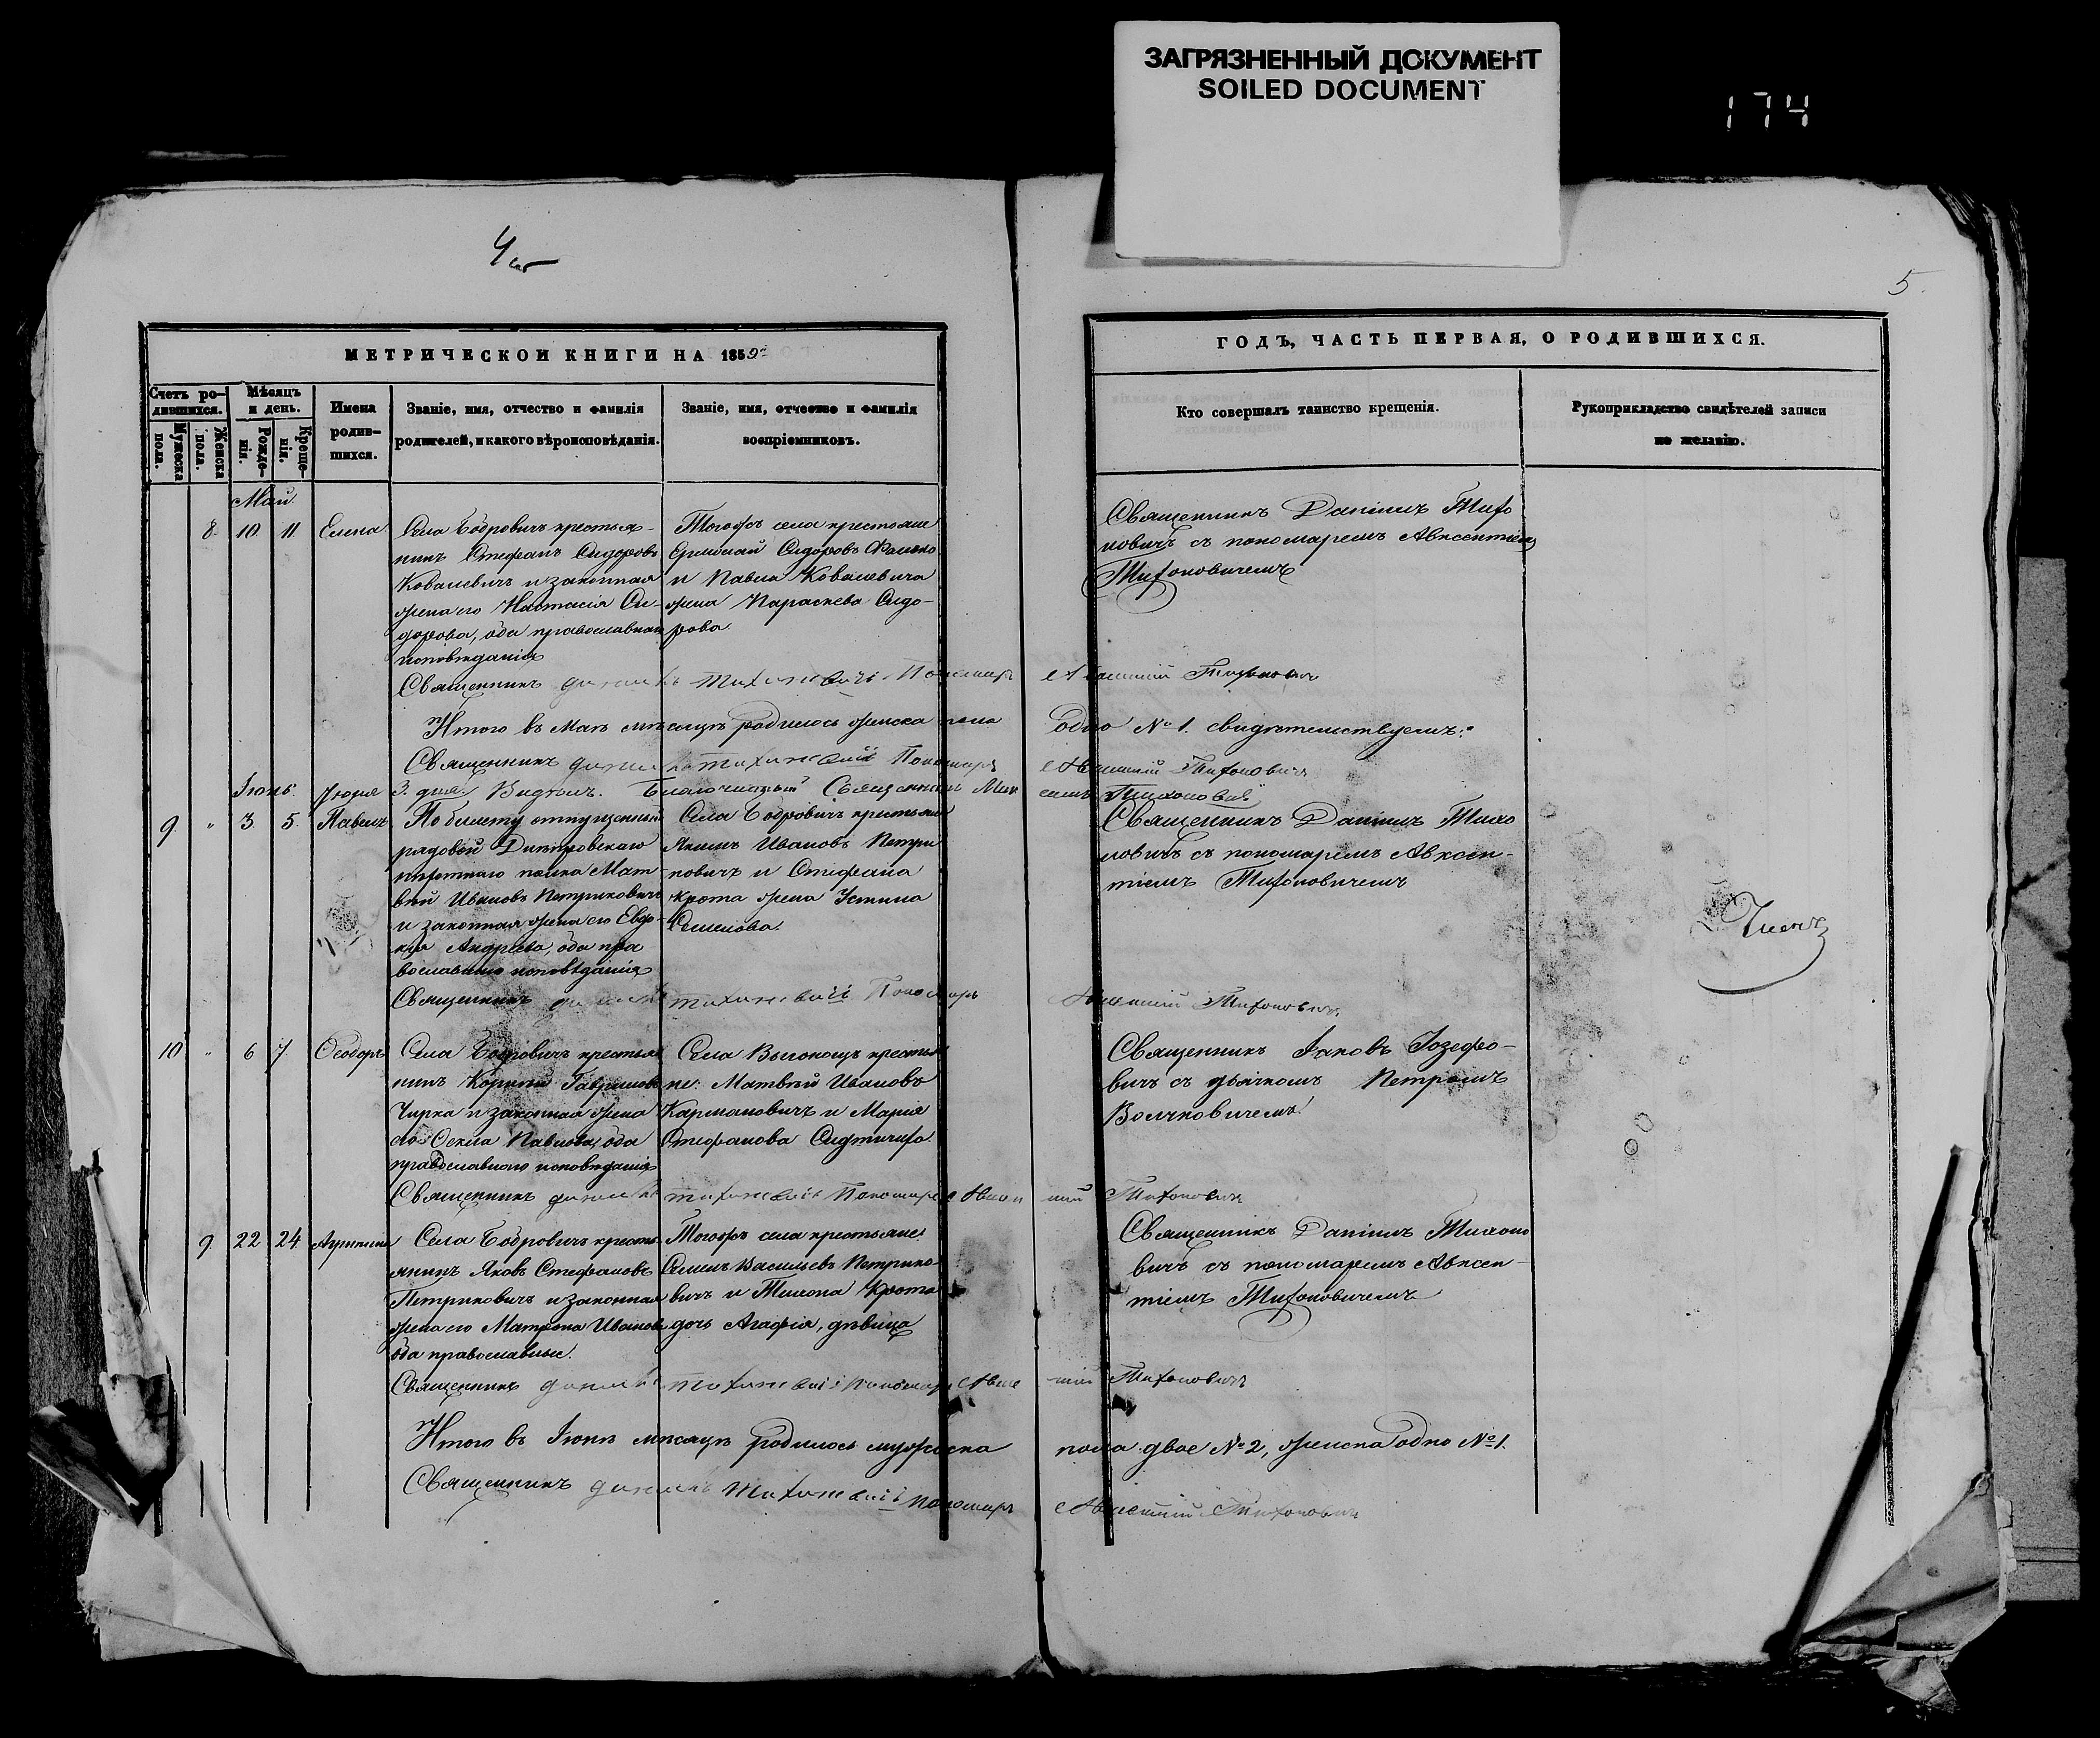 ЗАГРЯЗНЕННЫЙ ДОКУМЕНТ
SOILED DOCUMENT
174
4
5.
МЕТРИЧЕСКОЙ КНИГИ НА 1859
Счетъ ро-
дившихся.
Мѣсяцъ
и день.
Мужеска
пола.
Женска
пола.
Рожде-
нія.
Креще-
нія.
Имена
родив-
шихся.
Званіе, имя, отчество и фамилія
родителей, и какого вѣроисповѣданія.
Званіе, имя, отчество и фамилія
воспріемниковъ.
ГОДЪ, ЧАСТЬ ПЕРВАЯ, О РОДИВШИХСЯ.
Кто совершалъ таинство крещенія.
Рукоприкладство свидѣтелей записи
по желанію.
Май
8. 10 11. Елена
Села Бобровичъ крестья-
нинъ Стефанъ Сидоровъ
Ковалевичъ и законная
жена его Настасія Си-
дорова, оба православнаго
исповѣданія
Тогожъ села крестьяне
Ермолай Сидоровъ
и Павла Ковалевича
жена Параскева Сидо-
рова.
Священникъ Даніилъ Тихо
новичъ съ пономаремъ Авксентіемъ
Тихоновичемъ
Священникъ Даніилъ Тихановичъ Пономарь Авксентій Тихоновичъ
Итого въ Маѣ мѣсяцѣ родилось женска пола одно № 1. свидѣтельствуемъ:
Священникъ Даніилъ Тихановичъ Пономарь Авксентій Тихоновичъ
Іюня 3. дня. Видѣлъ. Благочинный Священникъ
Іюнь.
9. " 3. 5. Павелъ
По билету отпущенный
рядовой Днѣпровскаго
пѣхотнаго полка Мат-
вѣй Ивановъ Петриковичъ
и законная жена его Евдо-
кія Андреева, оба пра
вославнаго исповѣданія
Села Бобровичъ крестьяне
Якимъ Ивановъ Петри
ковичъ и Стефана
Крота жена Устина
Семенова.
Священникъ Даніилъ Тихо
новичъ съ пономаремъ Авксен-
тіемъ Тихоновичемъ
Священникъ Даніилъ Тихановичъ Пономарь Авксентій Тихоновичъ
10 " 6 7. Ѳеодоръ
Села Бобровичъ крестья
нинъ Корнѣй Гавриловъ
Чирка и законная жена
его Ѳекла Павлова, оба
православнаго исповѣданія
Села Выгонощъ крестья
не: Матвѣй Ивановъ
Кармановичъ и Марія
Стефанова
Священникъ Іаковъ Іозефо-
вичъ съ дьячкомъ Петромъ
Волчковичемъ
Священникъ Даніилъ Тихановичъ Пономарь Авксентій Тихоновичъ
9. 22 24 Агрипина
Села Бобровичъ кресть
янинъ Яковъ Стефановъ
Петриковичъ и законная
жена его Матрона Иванова
оба православные.
Тогожъ села крестьяне:
Семенъ Васильевъ Петрико-
вичъ и Тихона Крота
дочь Агафія, дѣвица
Священникъ Даніилъ Тихоно
вичъ съ пономаремъ Авксен-
тіемъ Тихоновичемъ
Священникъ Даніилъ Тихановичъ Пономарь Авксентій Тихоновичъ
Итого въ Іюнѣ мѣсяцѣ родилось мужеска пола двое № 2, женска одно № 1.
Священникъ Даніилъ Тихановичъ Пономарь Авксентій Тихоновичъ